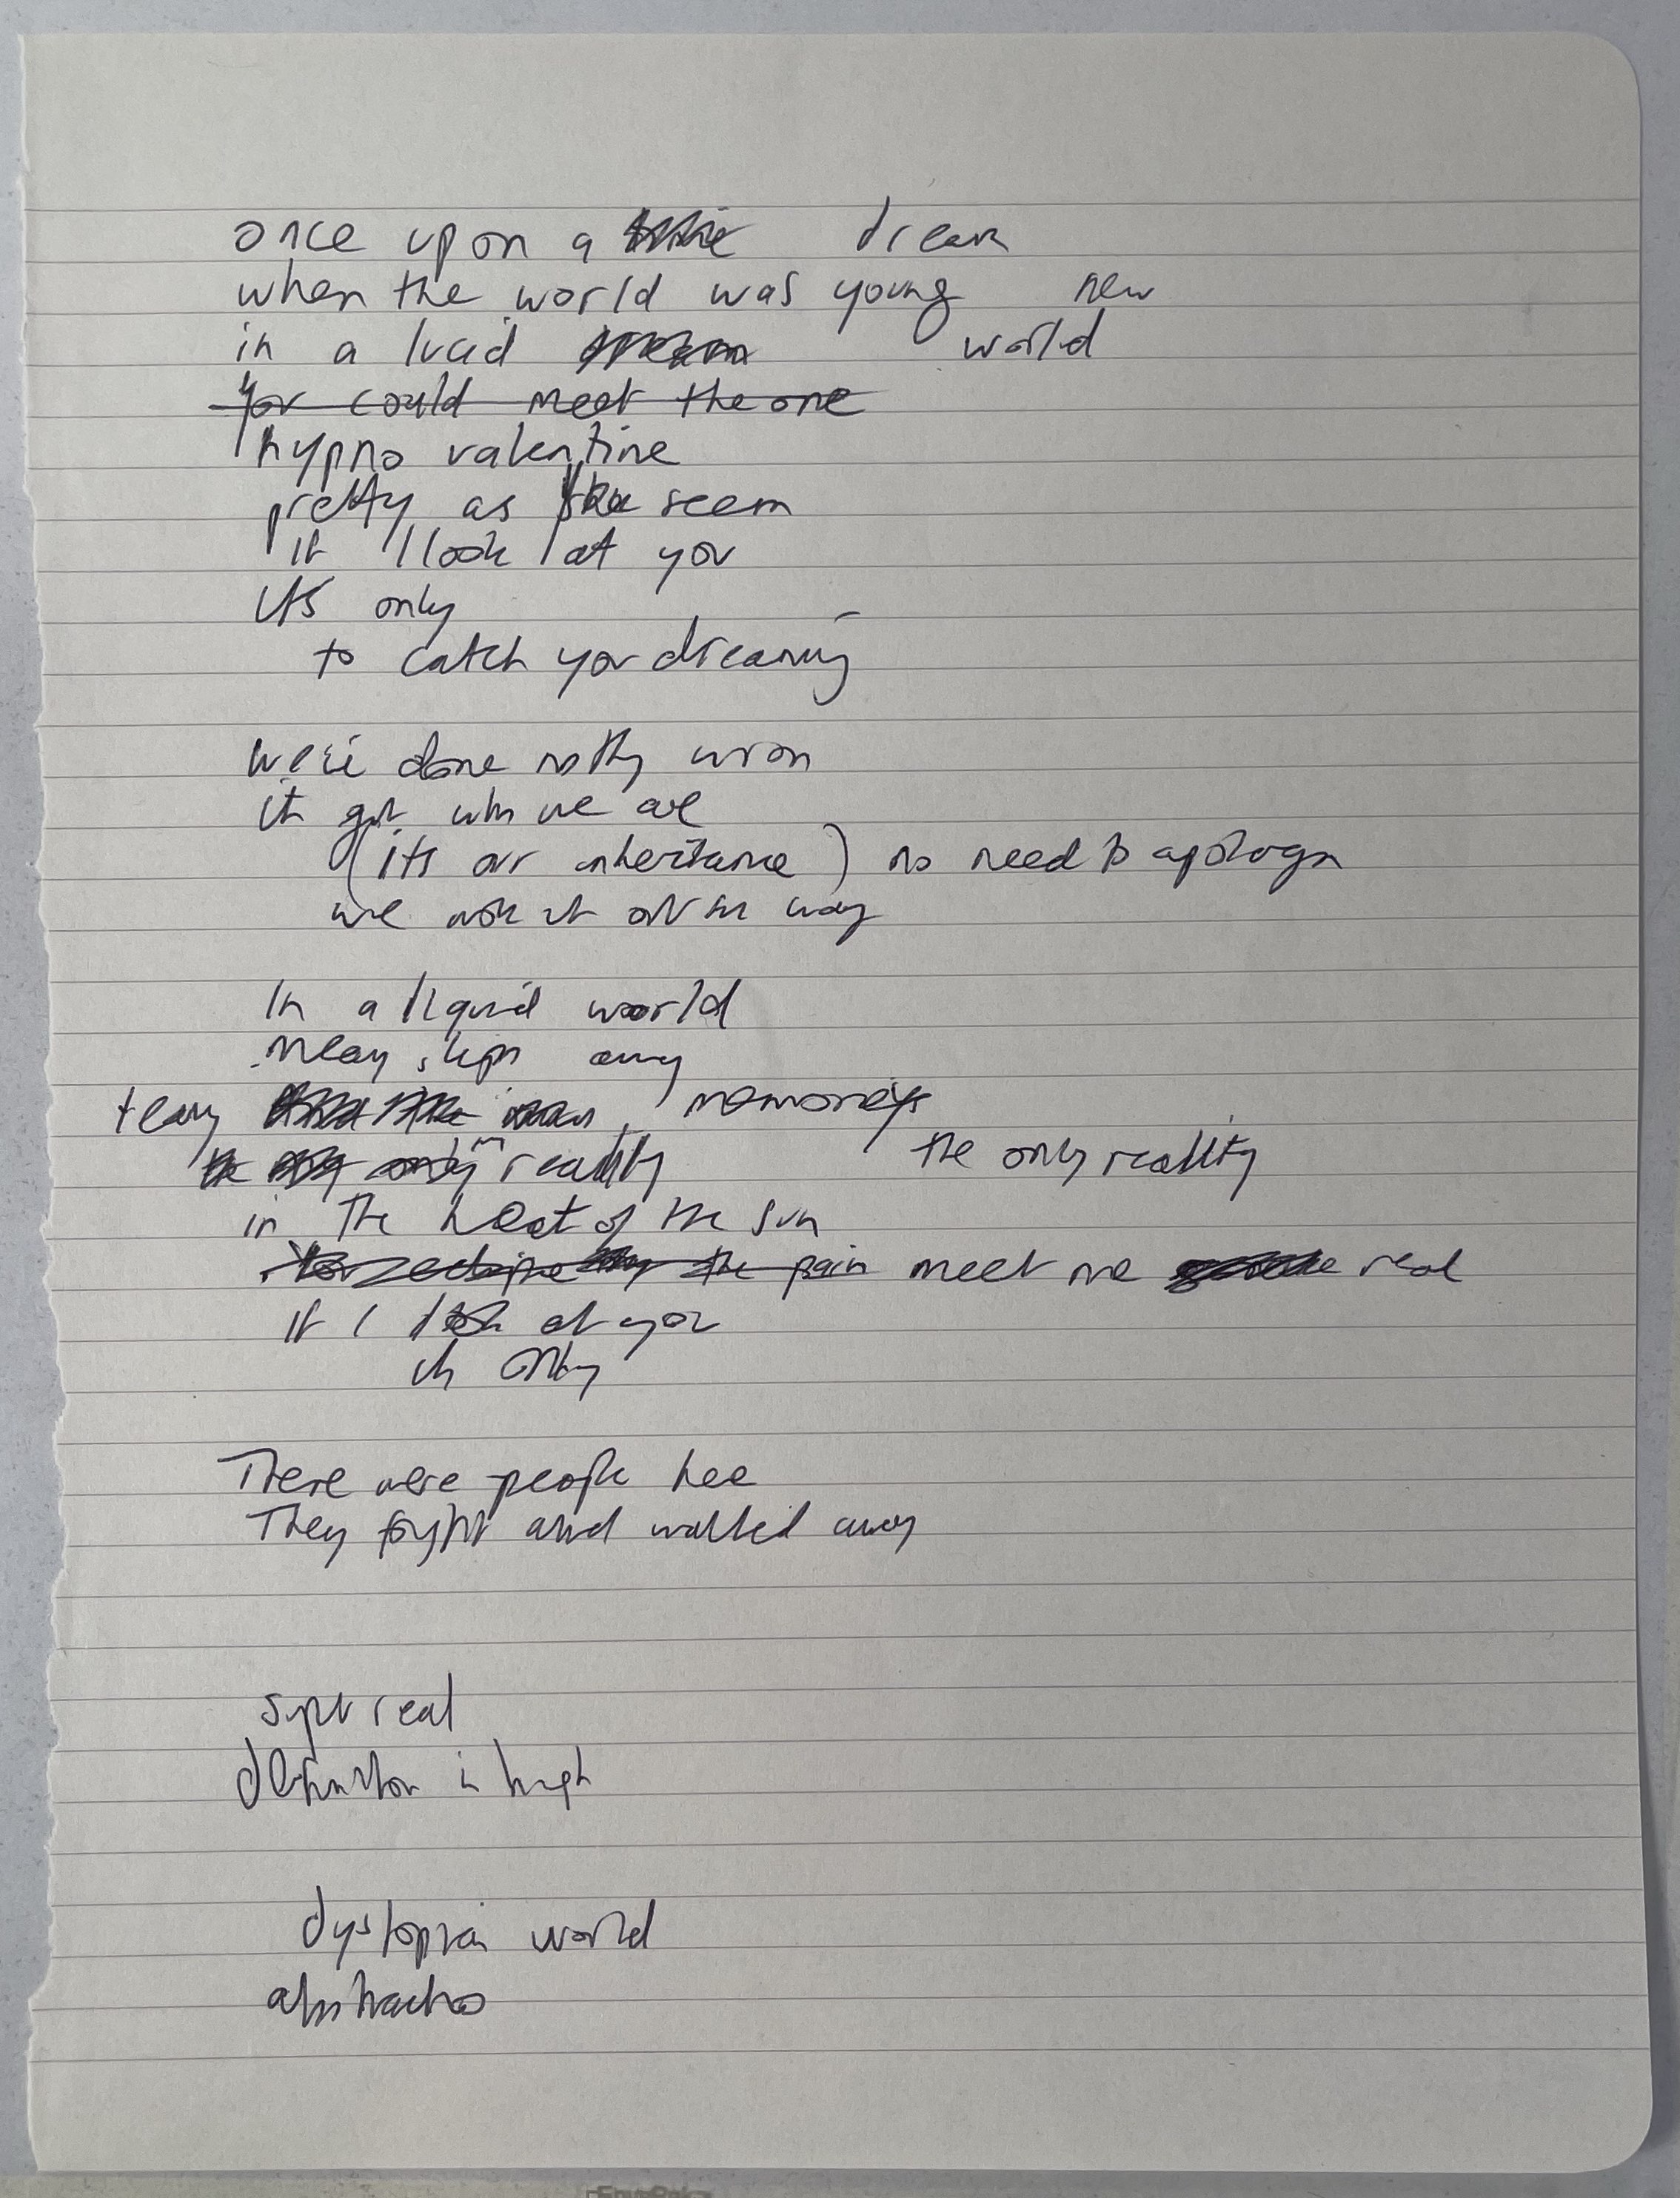 once upon a dream
when the world was young new
in a lucid world
you could meet the one
hypno valentine
pretty as seem
if I look at you
it's only
to catch you dreaming
we've done wron
it who we are
(its our inheritance) no need to
we it way
In a liquid world
slips away
memories
reality the only reality
in the heat of the sun
the pain meet me real
if I look at you
only
There were people here
They fought and walked away
real
definition is high
dystopian world